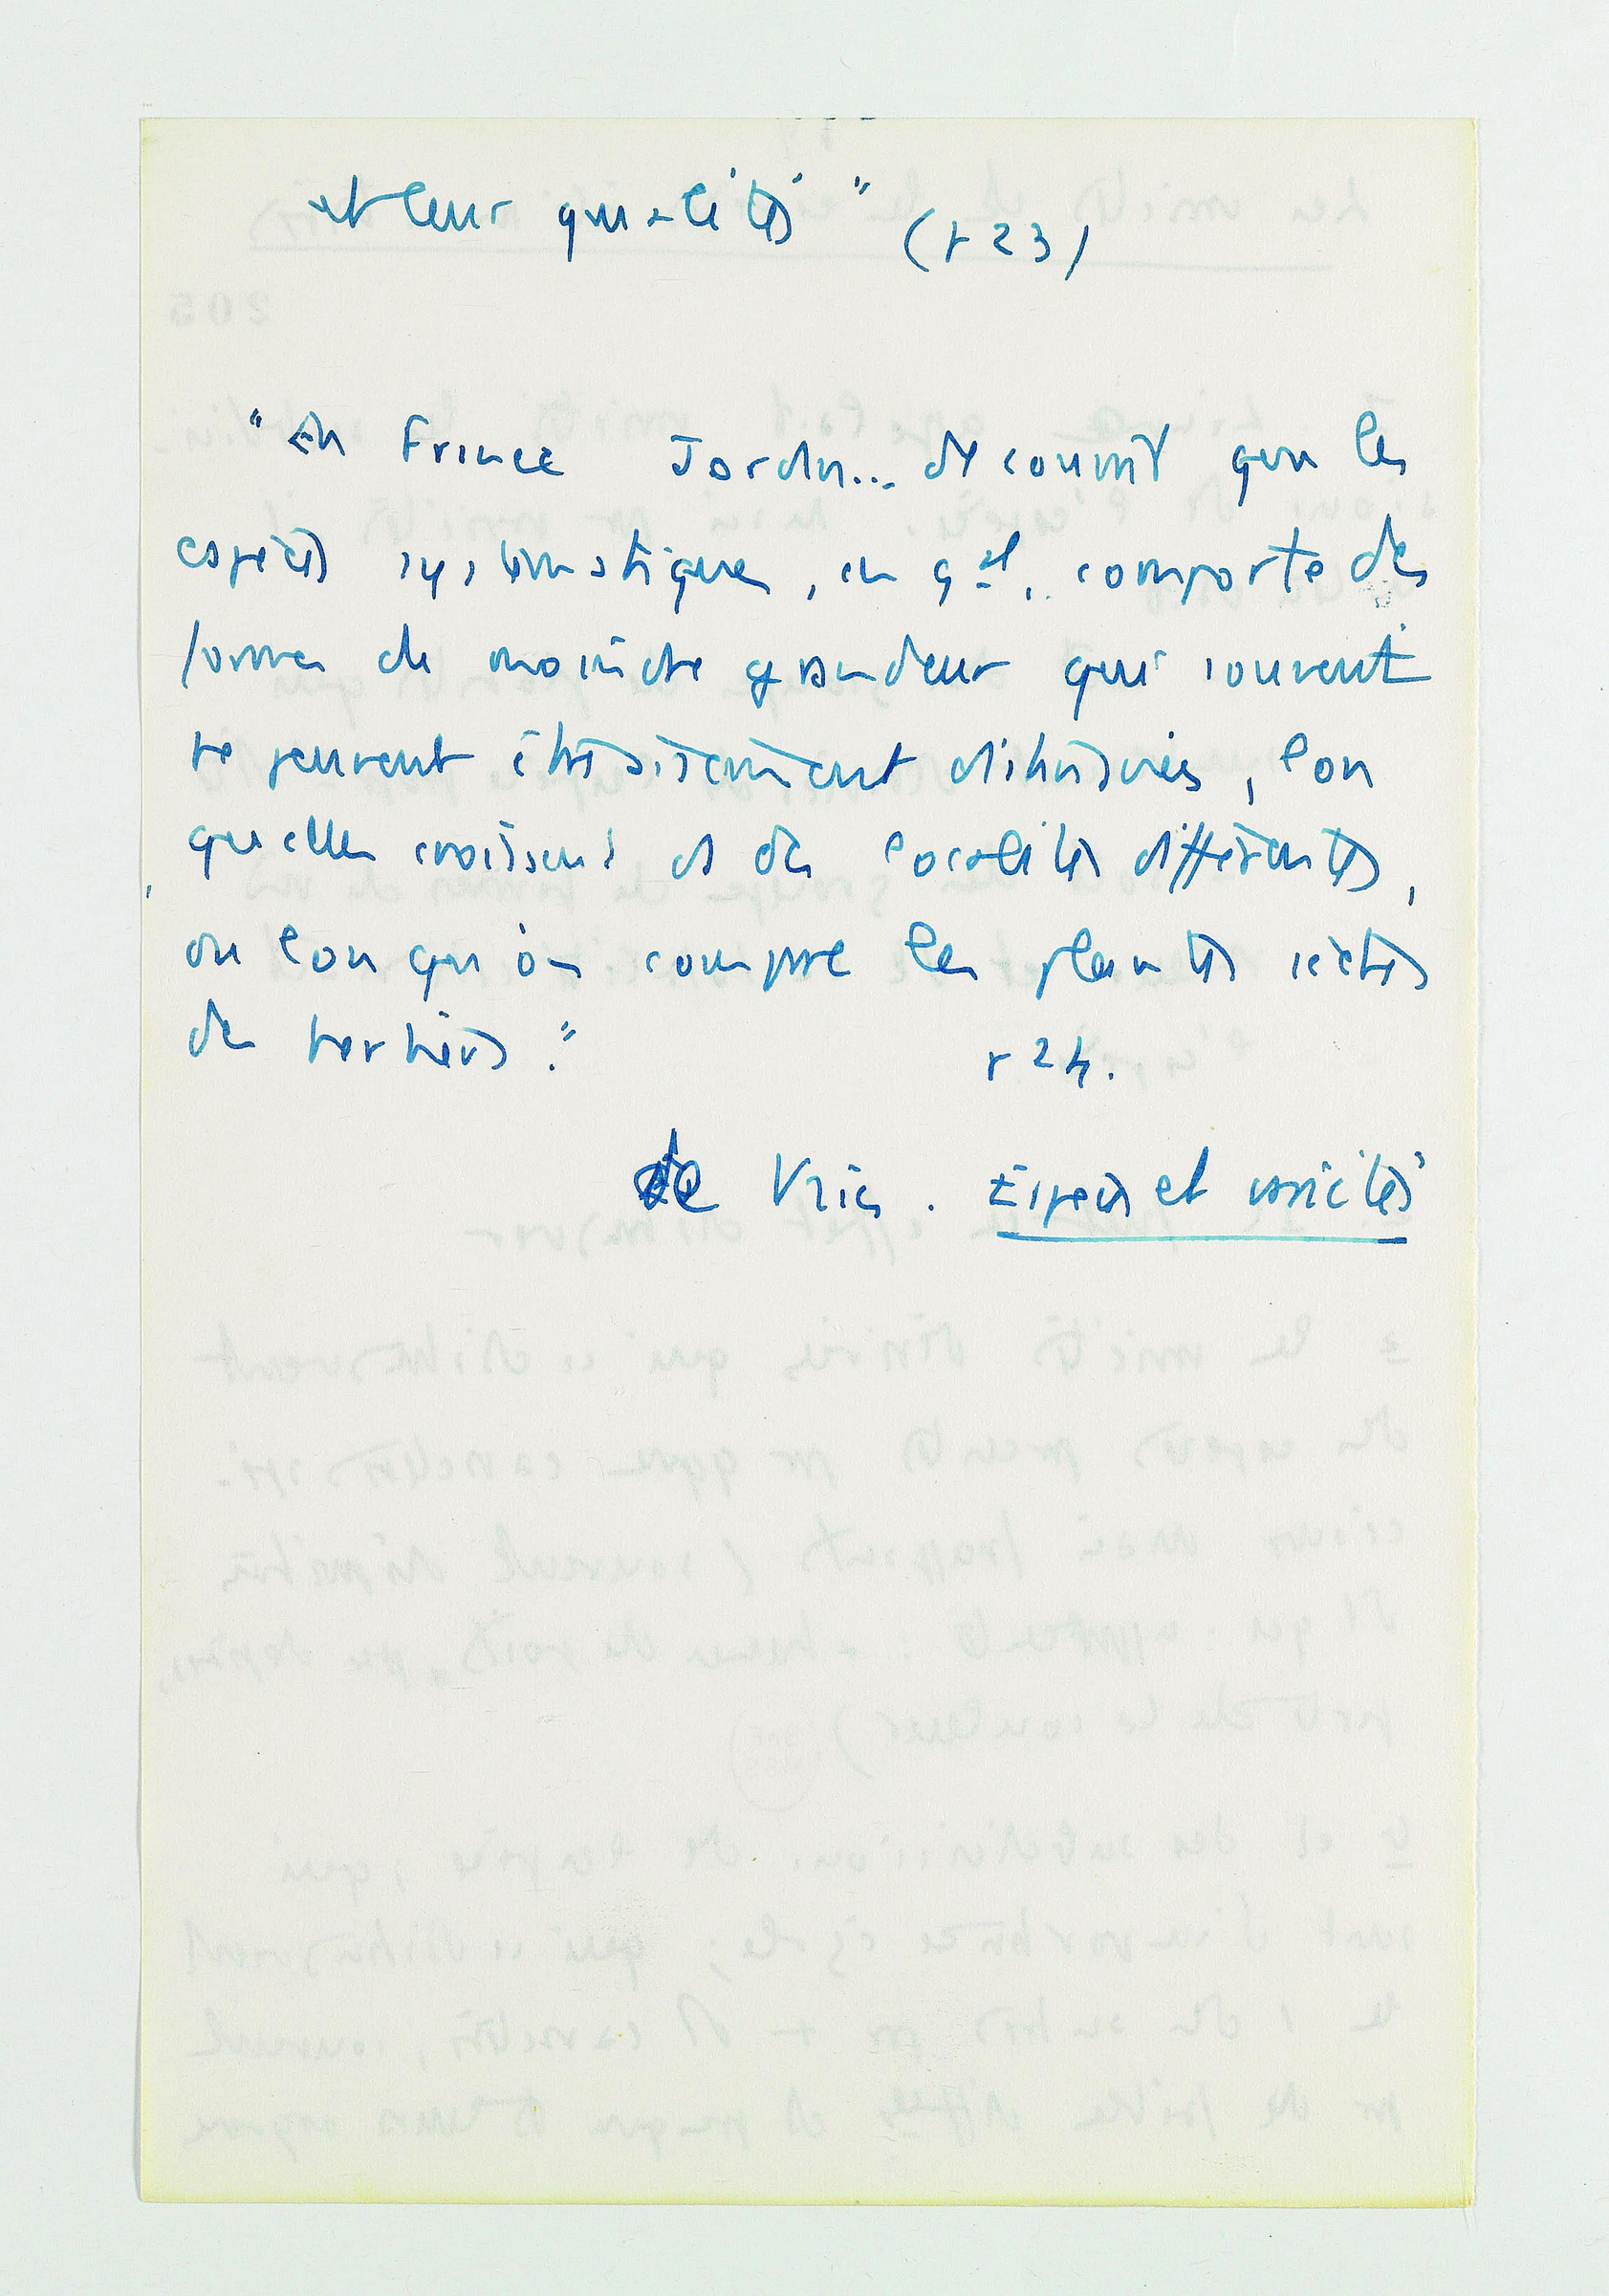 et leurs qualités" (p 23)
"En France Jordan... découvrit que les
espèces systématiques, en gal, comporte des
formes de moindre grandeur qui souvent
ne peuvent être aisément distinguées, lors
qu'elles croissent ds des localités différentes,
ou lorsqu'on compare les plantes sèches
des herbiers."
p 24.
de Vries. Espèces et variétés